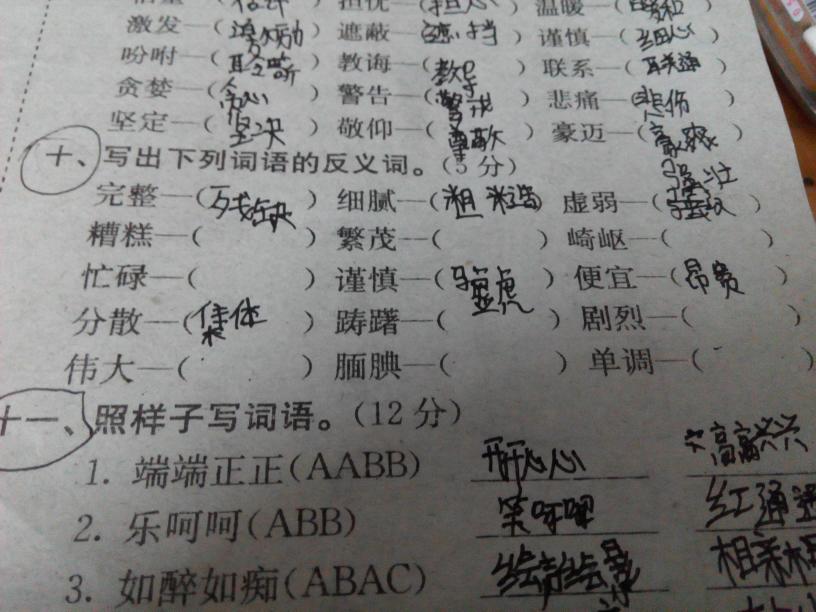 担忧—(担心) 温暖—(
激发—( 遮蔽—(遮挡) 谨慎—(细心)
吩咐—( 教诲—(教导) 联系—(
贪婪—(贪心) 警告—(警戒) 悲痛—(悲伤)
坚定—(坚决) 敬仰—(尊敬) 豪迈—(豪爽)
十、写出下列词语的反义词。(5分)
强壮
完整—(残缺) 细腻—(粗糙) 虚弱—(
糟糕—( ) 繁茂—( ) 崎岖—( )
忙碌—( ) 谨慎—( ) 便宜—(昂贵)
分散—(集体) 踌躇—( ) 剧烈—( )
伟大—( ) 腼腆—( ) 单调—( )
十一、照样子写词语。(12分)
1. 端端正正(AABB) 开开心心 高高兴兴
2. 乐呵呵(ABB) 笑呀呀 红通通
3. 如醉如痴(ABAC) 绘声绘影 相亲相